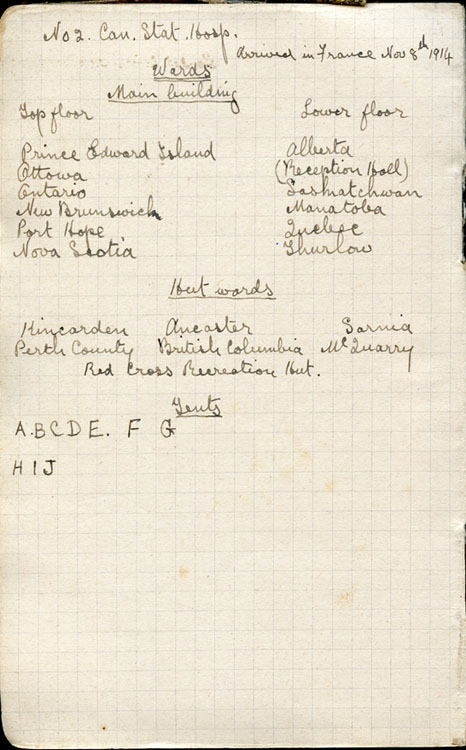 No 2. Can. Stat. Hosp.
Arrived in France Nov 8th 1914
Wards
Main building
Top floor Lower floor
Prince Edward Island Alberta
Ottowa (Reception Hall)
Ontario Saskatchwan
New Brunswick Manatoba
Port Hope Quebec
Nova Scotia Thurlow
Hut wards
Kincarden Ancaster Sarnia
Perth County British Columbia McQuarry
Red Cross Recreation Hut.
Tents
A.B C D E. F G
H I J